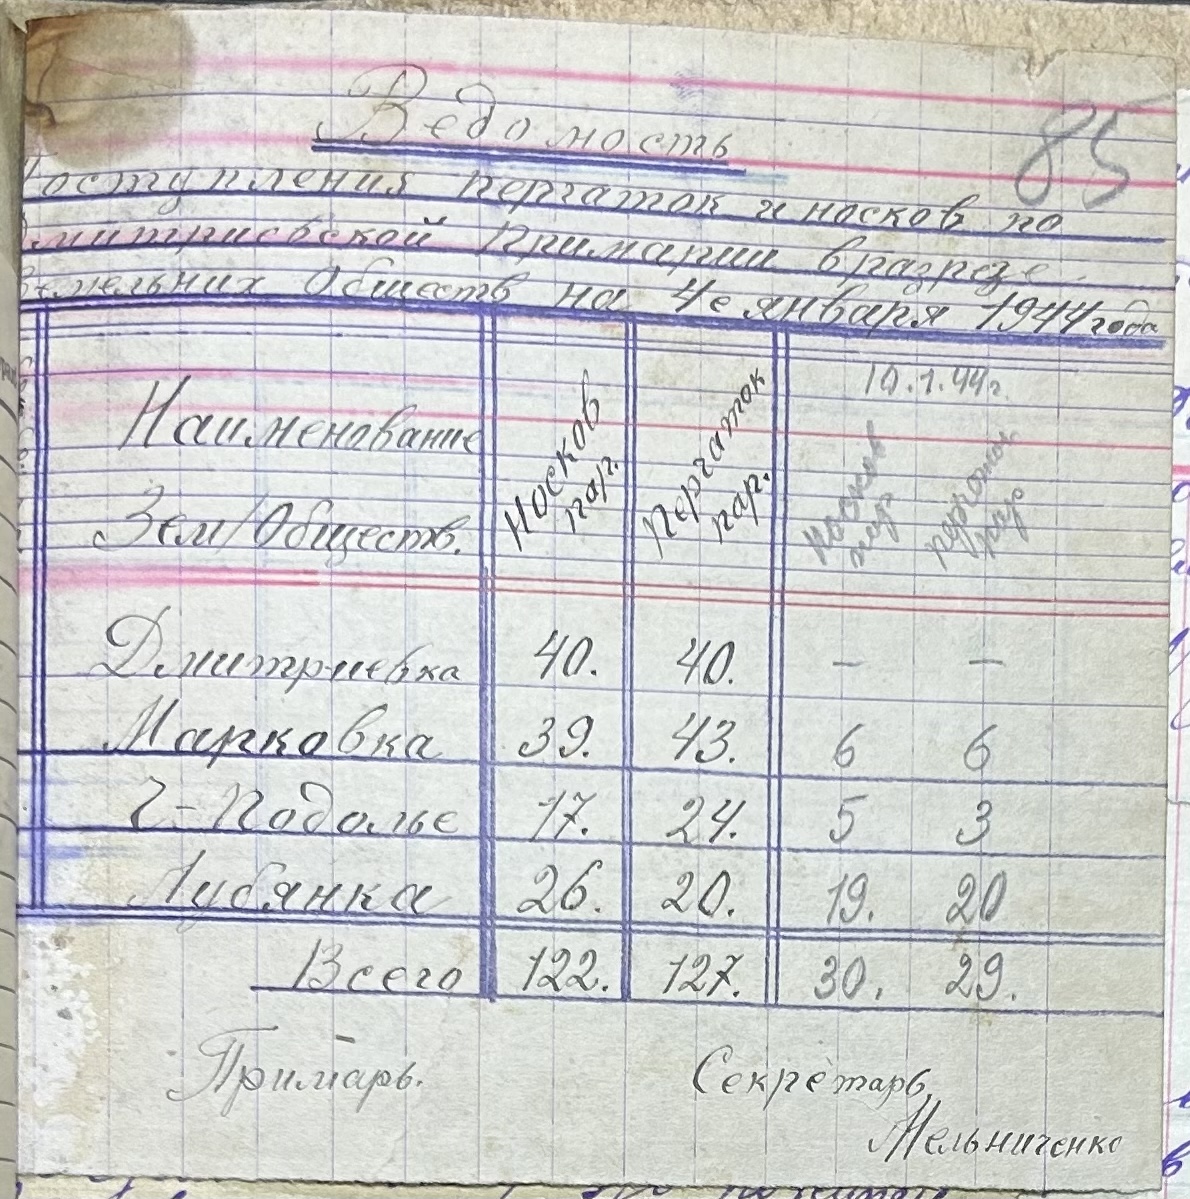 85
Ведомость
Поступления перчаток и носков по
Дмитриевской Примарии в разрезе
земельних Обществ на 4е января 1944 года
Наименование Зем/Обществ. Носков пар. Перчаток пар. 10.1.44г. Носков пар перчаток пар
Дмитриевка 40. 40. – –
Марковка 39. 43. 6 6
Г-Подолье 17. 24. 5 3
Лубянка 26. 20. 19. 20
Всего 122. 127. 30. 29.
Примарь. Секретарь,
Мельниченко